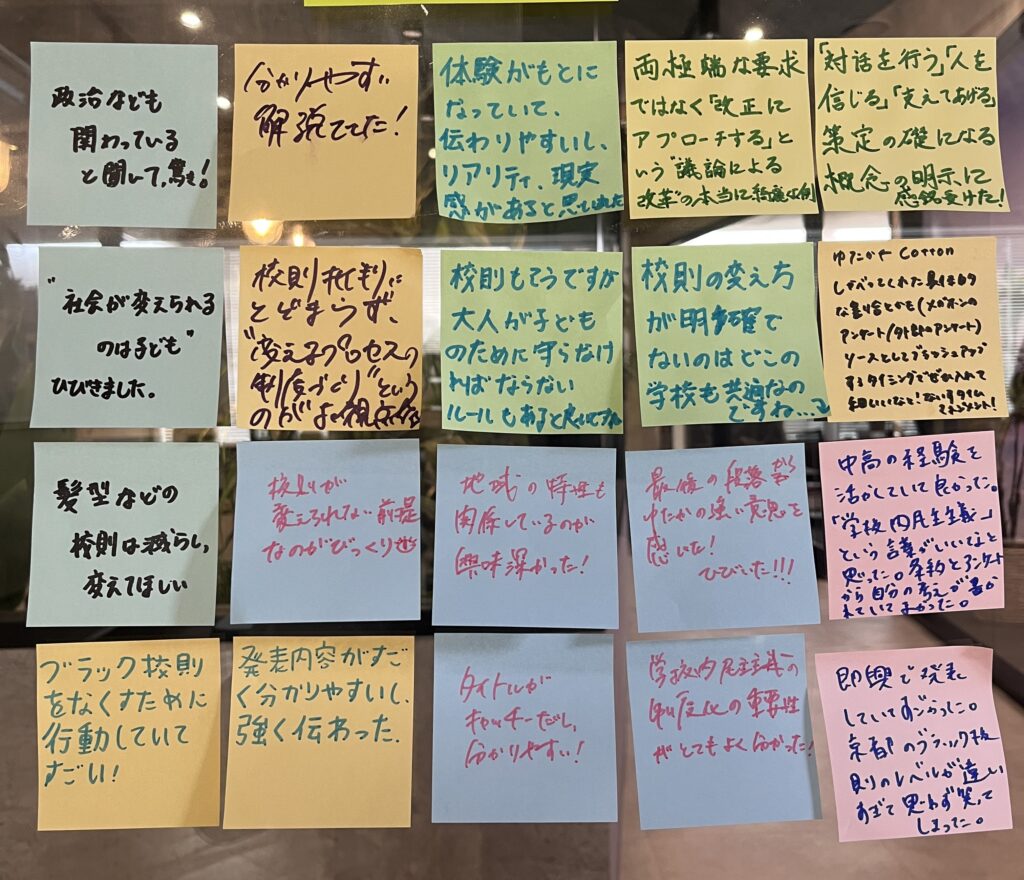 政治なども
関わっている
と聞いて、驚き!
分かりやすい
解説でした!
体験がもとに
なっていて、
伝わりやすいし、
リアリティ、現実
感があると思いました
両極端な要求
ではなく「改正に
アプローチする」と
いう"議論による
改革"の本当に綺麗な例
「対話を行う」「人を
信じる」「支えてあげる」
策定の礎になる
概念の明示に
感銘受けた!
"社会が変えられる
のは子ども"
ひびきました。
校則
とどまらず、
"変えるプロセスの
制度づくり"という
のがよい視点
校則もそうですが
大人が子ども
のために守らなけ
ればならない
ルールもあると
校則の変え方
が明確で
ないのはどこの
学校も共通なの
ですね…
ゆたかや Cotton
しゃべってくれた
な割合とかも(メガホンの
アンケート/外部のアンケート)
ソースとしてブラッシュアップ
するタイミングでぜひ入れて
タイム
マネジメント!
髪型などの
校則は減らし、
変えてほしい
校則が
変えられない前提
なのがびっくり
地域の特性も
関係しているのが
興味深かった!
最後の段落から
ゆたかの強い意思を
感じた!
ひびいた!!!
中高の経験を
活かしていて良かった。
「学校内民主主義」
という言葉がいいなと
思った。条約とアンケート
から自分の考えが書か
れていてよかった。
ブラック校則
をなくすために
行動していて
すごい!
発表内容がすご
く分かりやすいし、
強く伝わった.
タイトルが
キャッチーだし、
分かりやすい!
学校内民主主義の
制度化の重要性
がとてもよく分かった!
即興で発表
していてすごかった。
京都のブラック校
則のレベルが違い
すぎて思わず笑って
しまった。